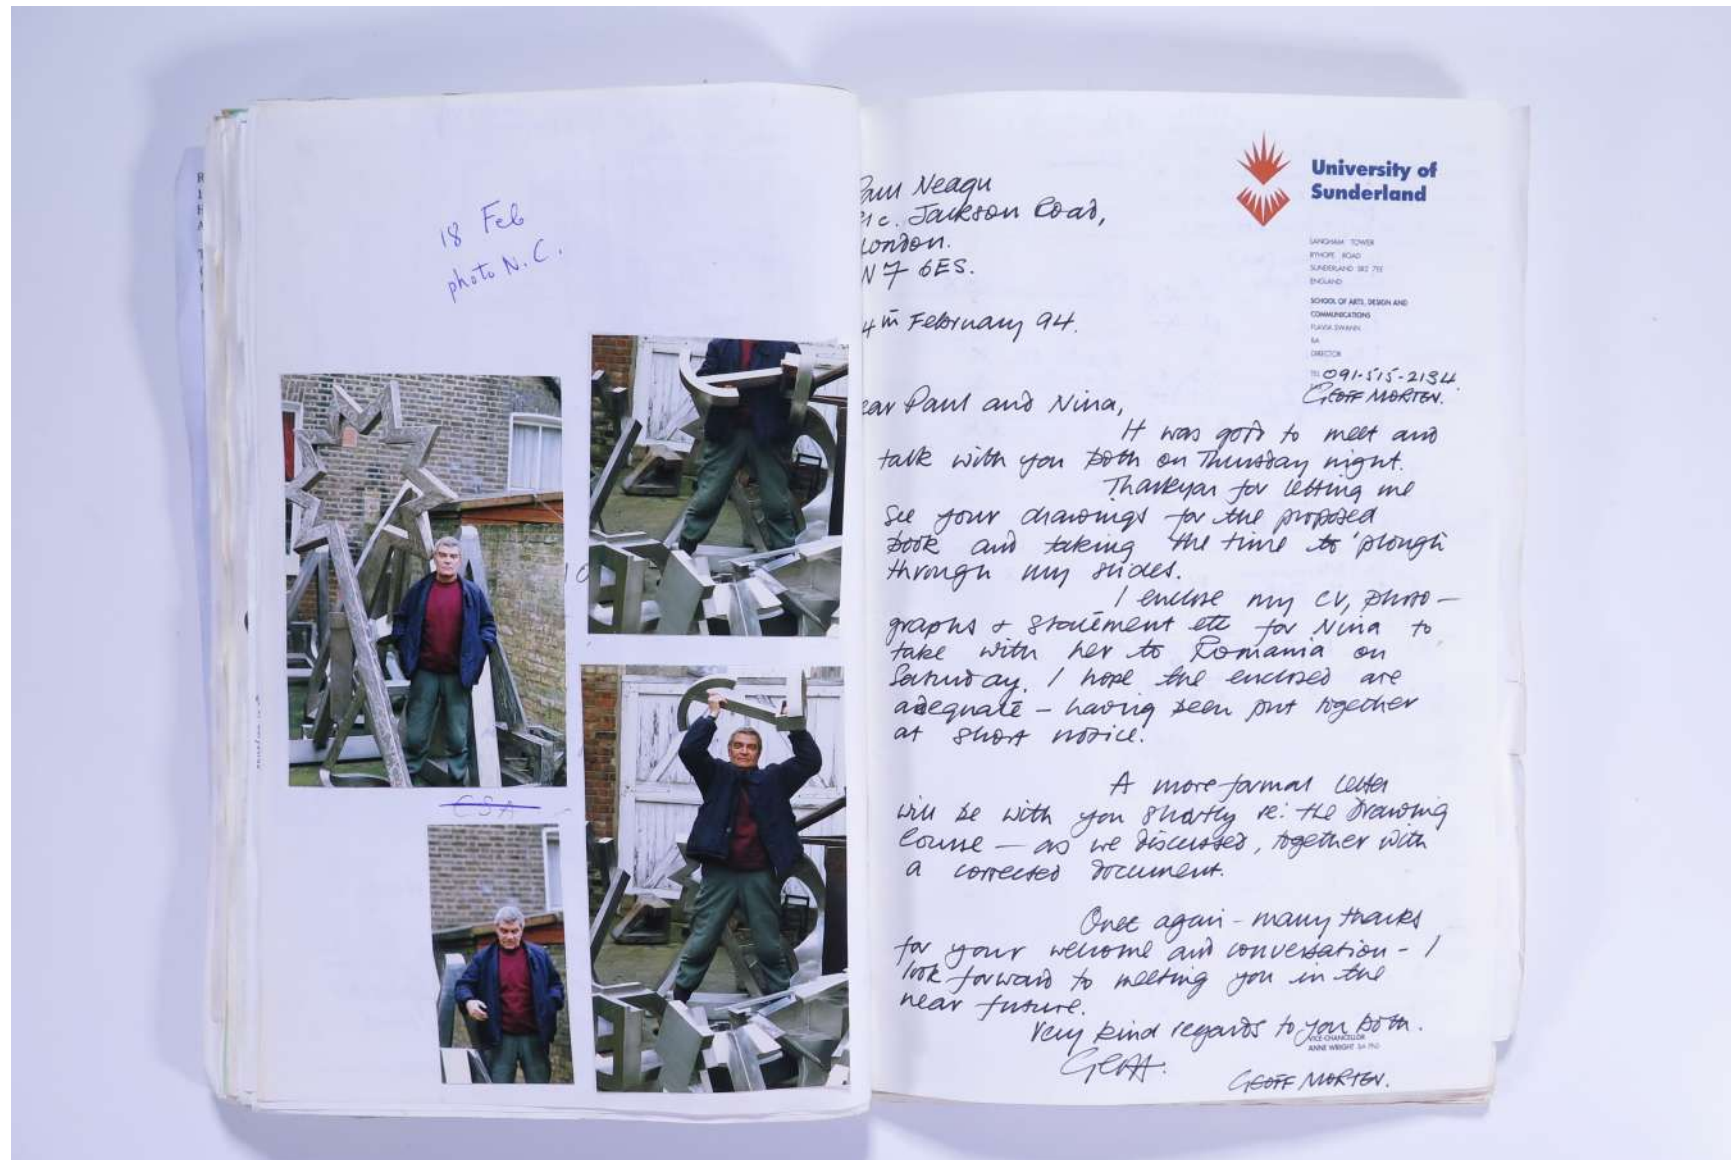 18 Feb
photo N.C.
CSA
Paul Neagu
c. Jackson Road,
London.
N7 6ES.
4th February 94.
University of
Sunderland
LANGHAM TOWER
RYHOPE ROAD
SUNDERLAND SR2 7EE
ENGLAND
SCHOOL OF ARTS, DESIGN AND
COMMUNICATIONS
FLAVIA SWANN
BA
DIRECTOR
TEL 091-515-2134
GEOFF MORTEN.
ear Paul and Nina,
It was good to meet and
talk with you both on Thursday night.
Thankyou for letting me
see your drawings for the proposed
book and taking the time to 'plough'
through my slides.
I enclose my CV, photo-
graphs + statement etc for Nina to
take with her to Romania on
Saturday. I hope the enclosed are
adequate - having been put together
at short notice.
A more formal letter
will be with you shortly re: the Drawing
Course - as we discussed, together with
a corrected document.
Once again - many thanks
for your welcome and conversation - I
look forward to meeting you in the
near future.
Very kind regards to you both.
VICE-CHANCELLOR
ANNE WRIGHT BA PhD
Geoff.
GEOFF MORTEN.